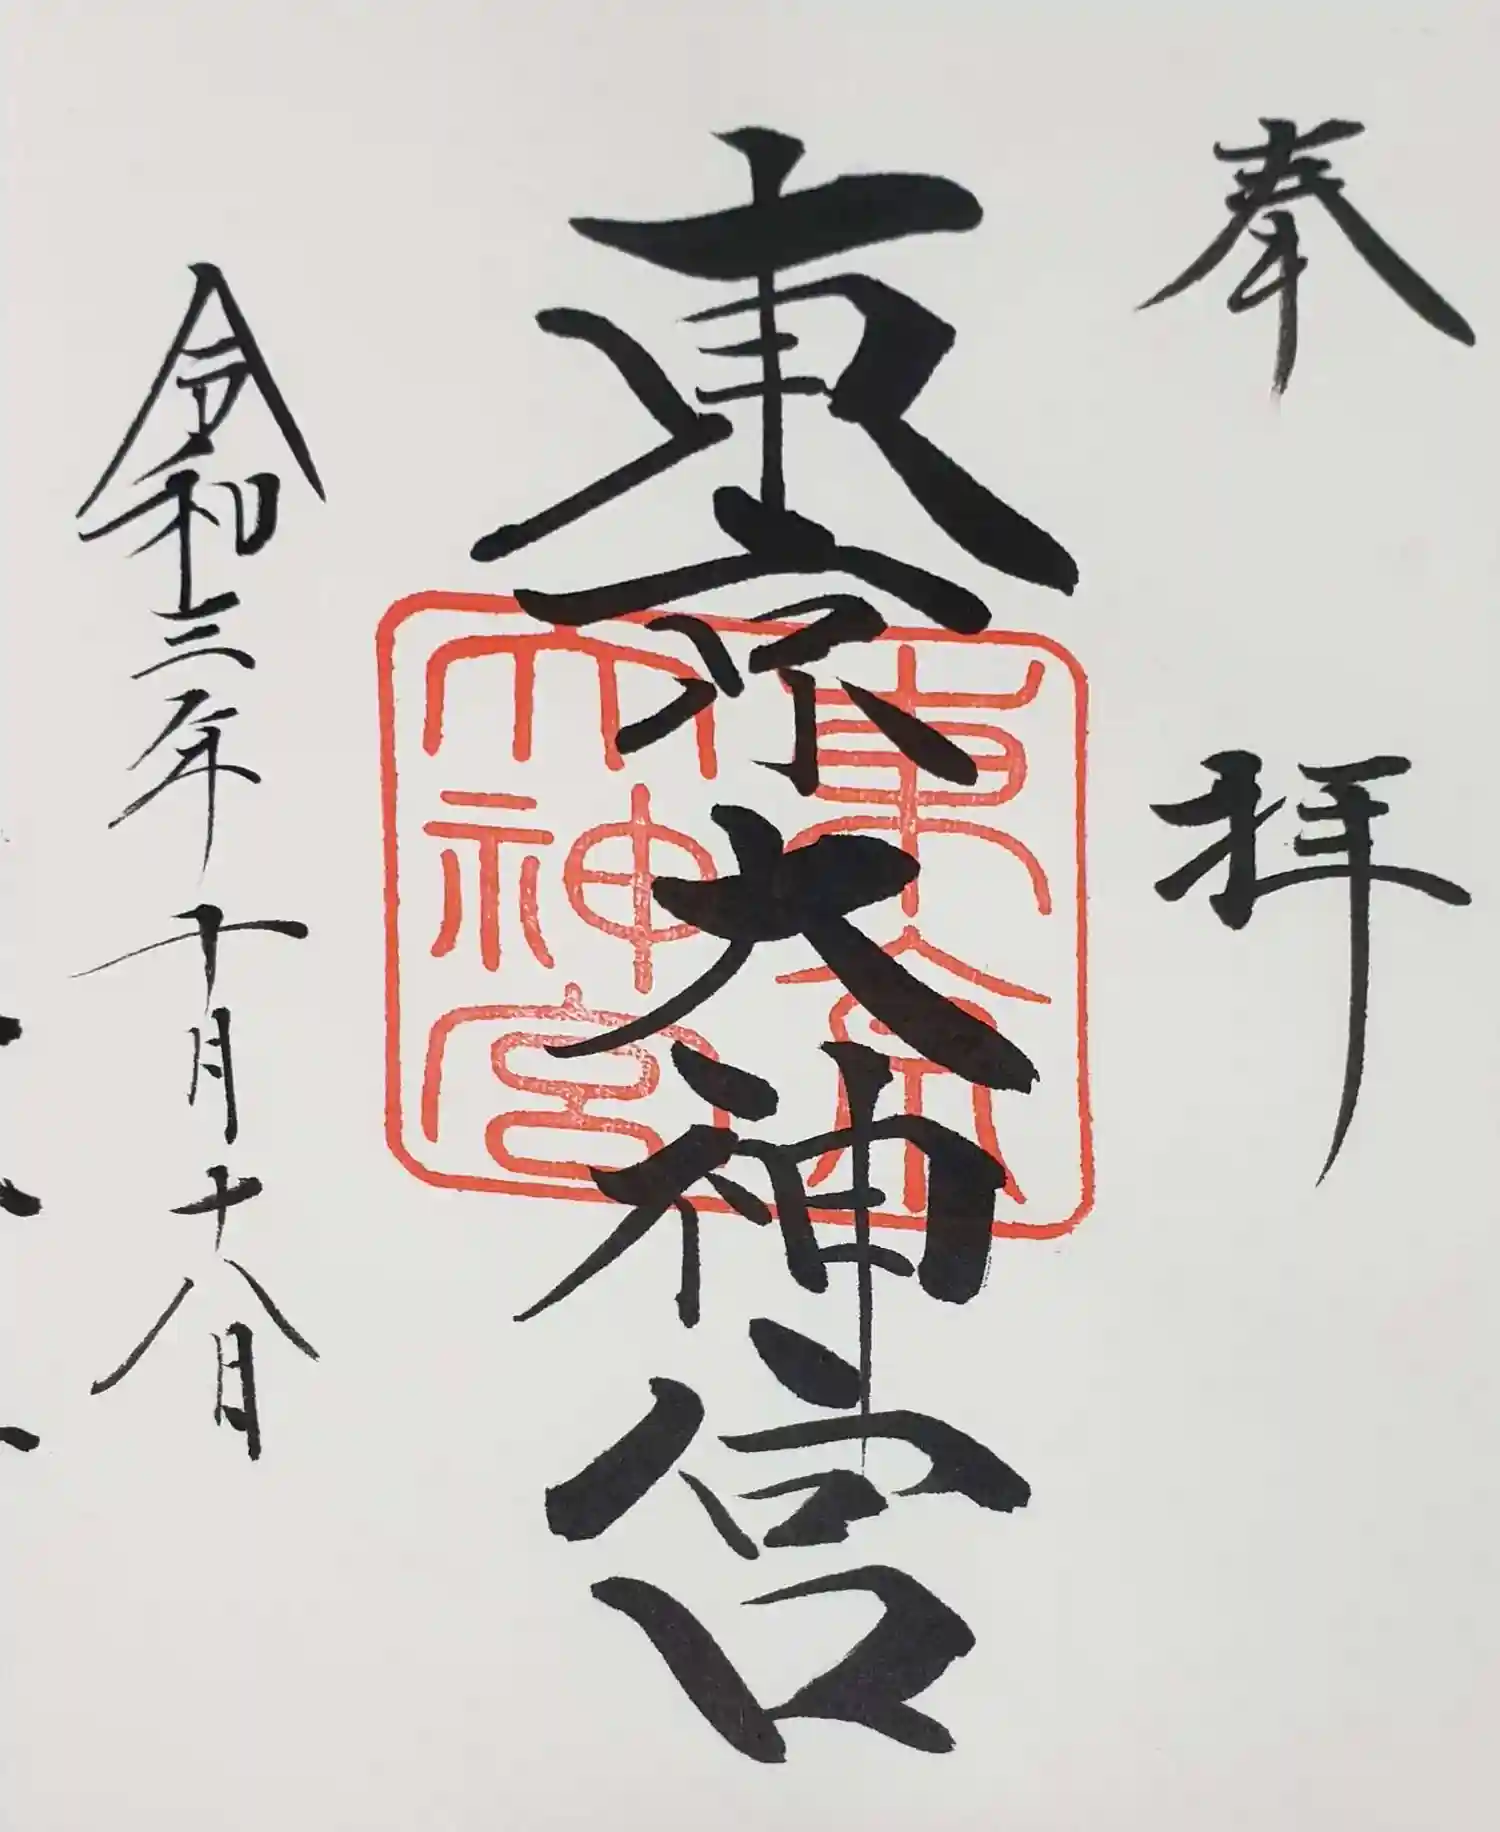 奉拝
東京大神宮
東京
大神宮
令和三年十月十八日